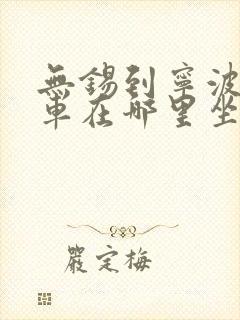 無錫到寧波
車在哪里坐
嚴定梅